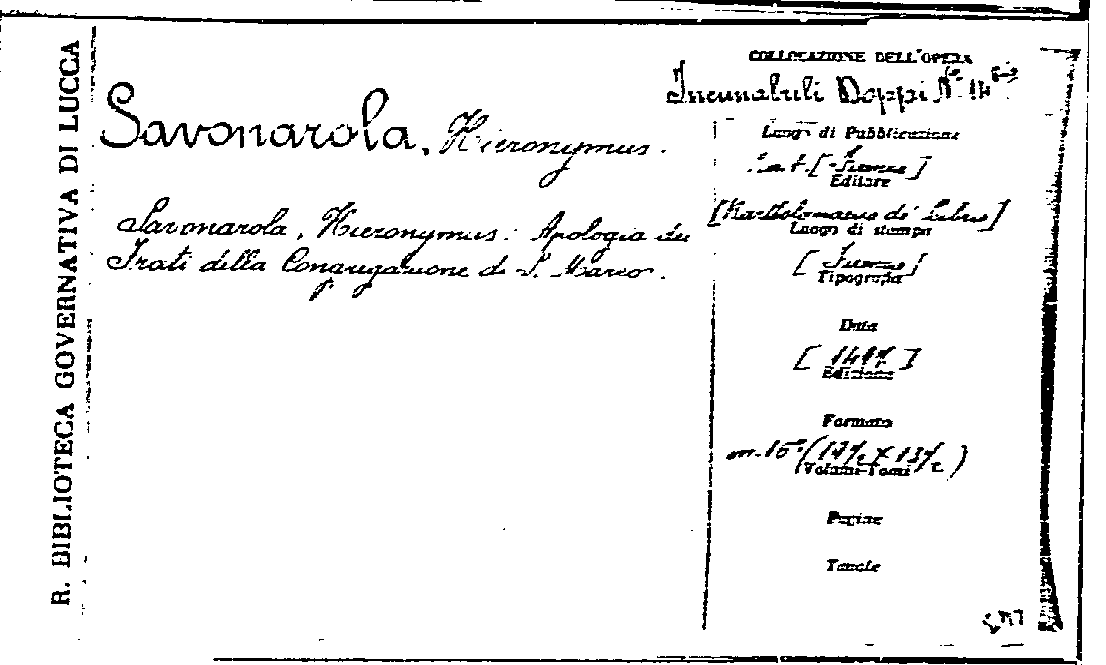 R. BIBLIOTECA GOVERNATIVA DI LUCCA
Savonarola, Hieronymus.
Savonarola, Hieronymus: Apologia dei
Frati della Congregazione di S. Marco.
COLLOCAZIONE DELL'OPERA
Incunabuli Doppi No 14
Luogo di Pubblicazione
Editore
[Bartholomaeus di Libris]
Luogo di stampa
Tipografia
Data
[1497]
Edizione
Formato
Volumi-Tomi
Pagine
Tavole